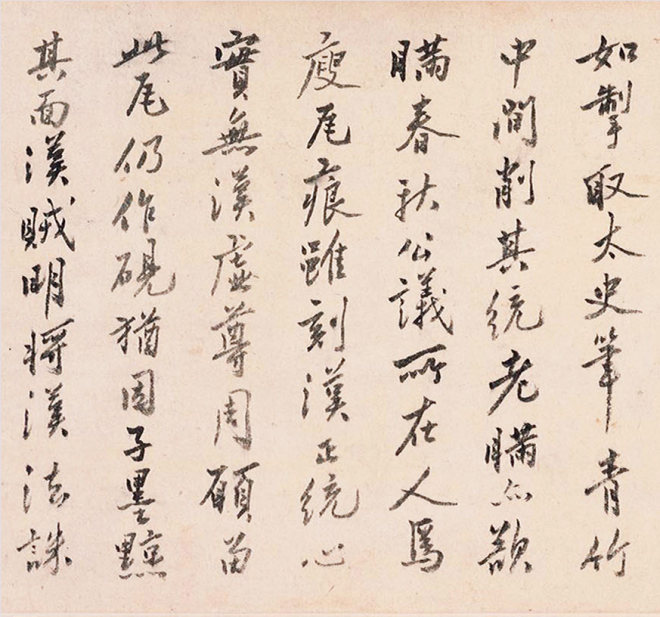 如掣取太史筆青竹
中間削其統老瞞亦欲
瞞春秋公議所在人焉
廋瓦痕雖刻漢正統心
實無漢虛尊周願留
此瓦仍作硯猶因子墨黥
其面漢賊明將漢法誅